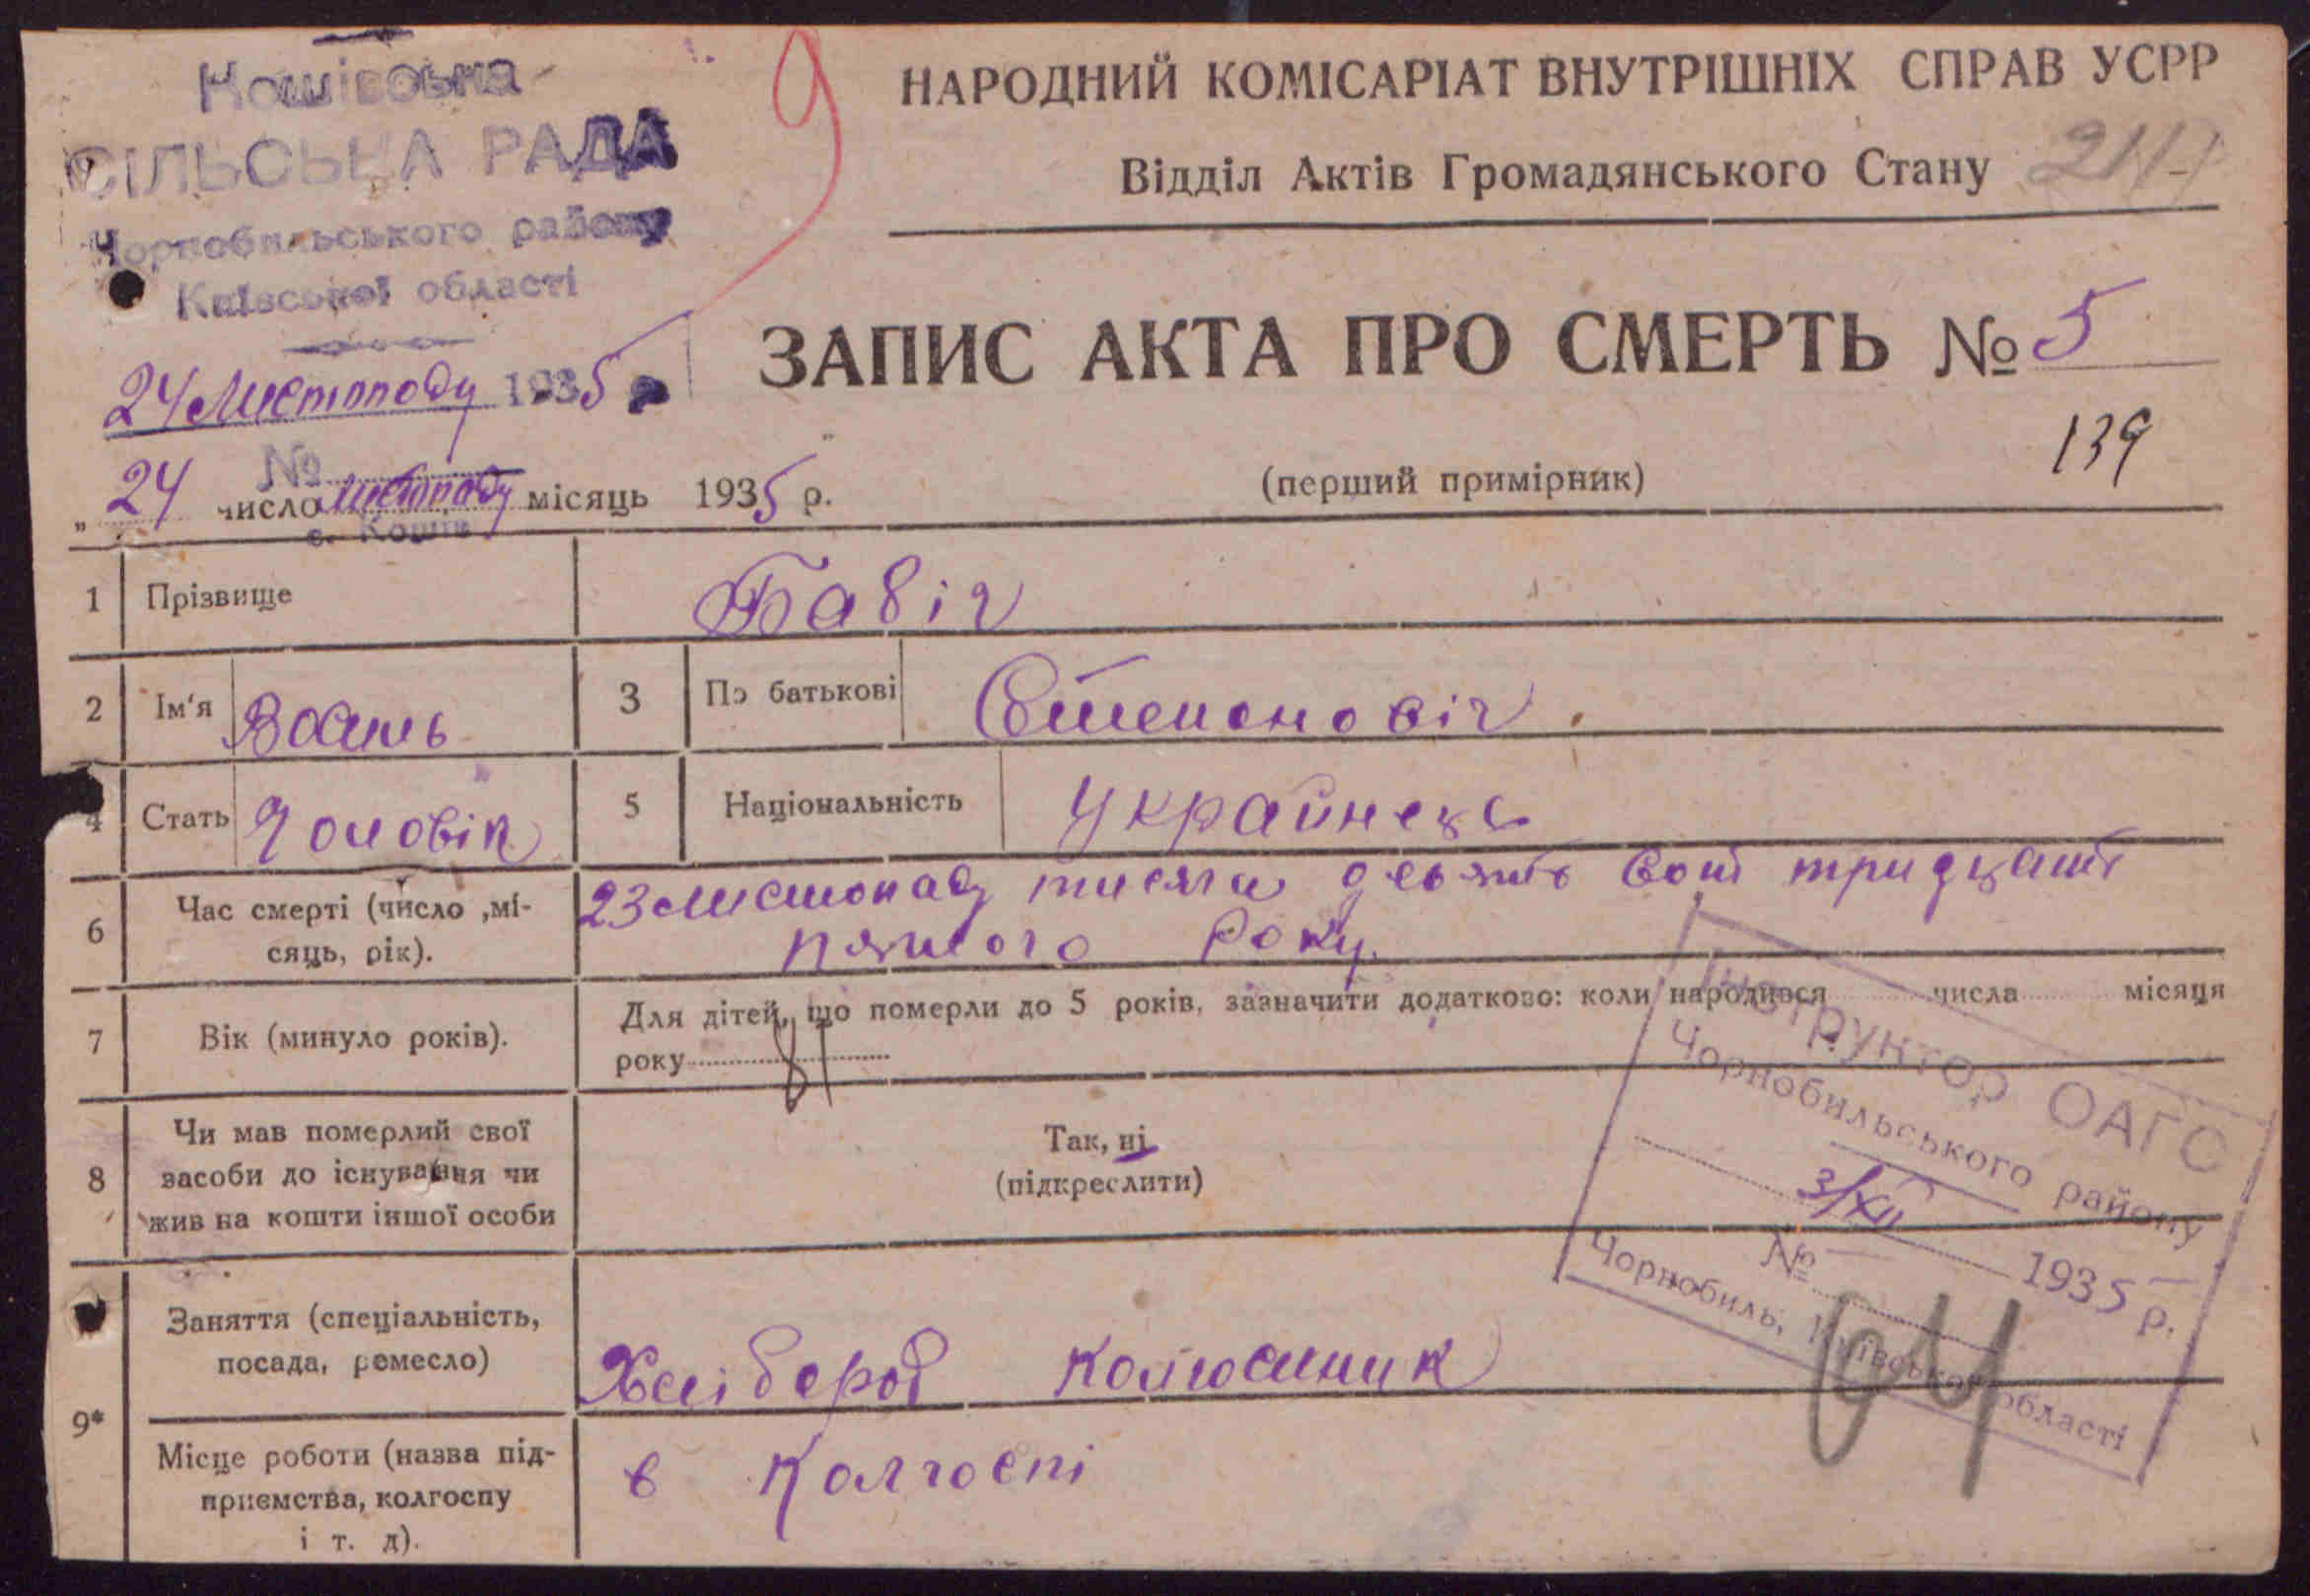 Кошівська
СІЛЬСЬКА РАДА
Чорнобильського району
Київської області
24 Листопаду 1935 р
№
с. Кошів
9
НАРОДНИЙ КОМІСАРІАТ ВНУТРІШНІХ СПРАВ УСРР
Відділ Актів Громадянського Стану
ЗАПИС АКТА ПРО СМЕРТЬ № 5
139
„ 24 число листопаду місяць 1935 р.
(перший примірник)
1 Прізвище Бабіч
2 Ім'я Восиль 3 По батькові Степонович
4 Стать Чоловік 5 Національність Украйнець
6 Час смерті (число ,мі-
сяць, рік).
23 листопад тисяча девять сот тридцать
пятого року.
7 Вік (минуло років).
Для дітей, що померли до 5 років, зазначити додатково: коли народився числа місяця
року 81
8 Чи мав померлий свої
засоби до існування чи
жив на кошти іншої особи
Так, ні
(підкреслити)
Інструктор ОАГС
Чорнобильського району
3/XII 1935 р.
№
Чорнобиль, Київської області
9* Заняття (спеціальність,
посада, ремесло)
Хлібороб колгоспник
Місце роботи (назва під-
приємства, колгоспу
і т. д).
в Колгоспі